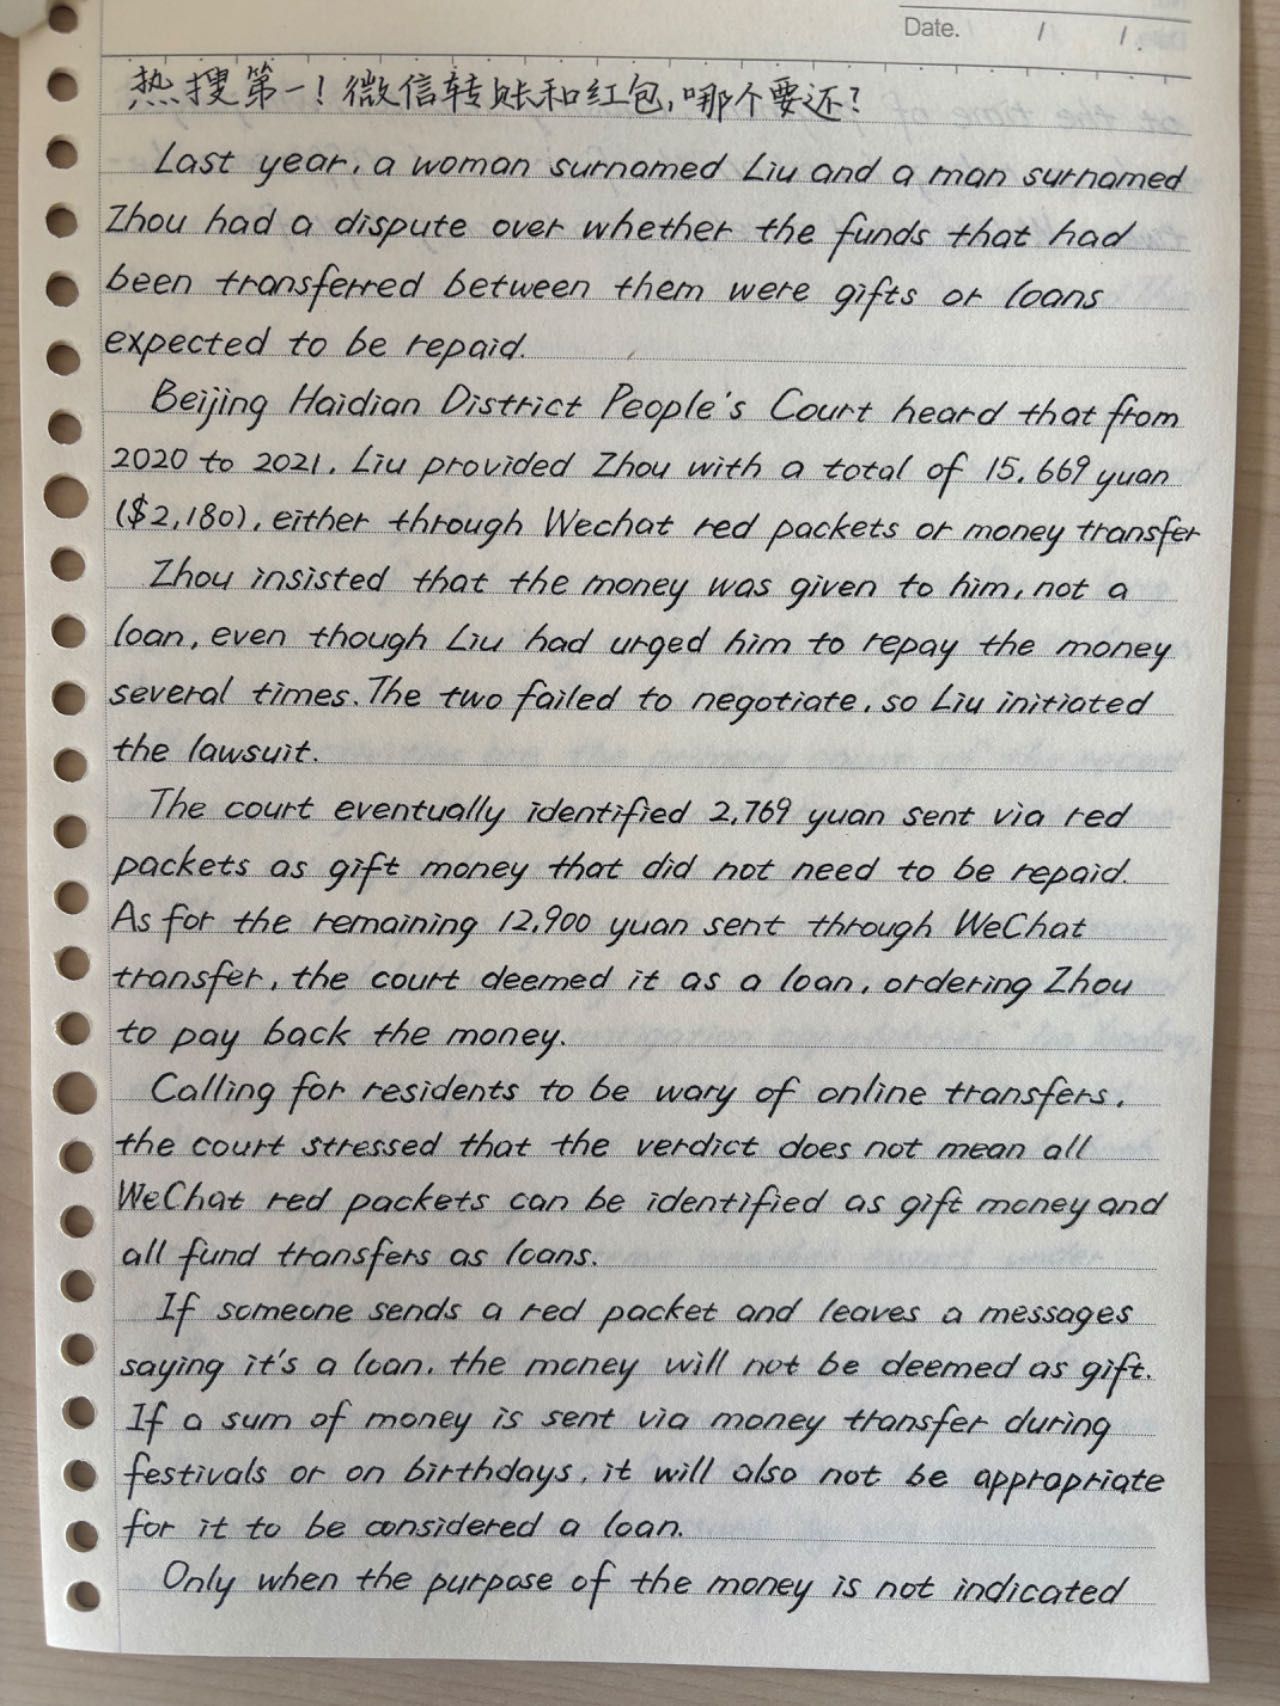 Date. / / .
热搜第一！微信转账和红包，哪个要还？
Last year, a woman surnamed Liu and a man surnamed
Zhou had a dispute over whether the funds that had
been transferred between them were gifts or loans
expected to be repaid.
Beijing Haidian District People's Court heard that from
2020 to 2021, Liu provided Zhou with a total of 15,669 yuan
($2,180), either through Wechat red packets or money transfer
Zhou insisted that the money was given to him, not a
loan, even though Liu had urged him to repay the money
several times. The two failed to negotiate, so Liu initiated
the lawsuit.
The court eventually identified 2,769 yuan sent via red
packets as gift money that did not need to be repaid.
As for the remaining 12,900 yuan sent through WeChat
transfer, the court deemed it as a loan, ordering Zhou
to pay back the money.
Calling for residents to be wary of online transfers,
the court stressed that the verdict does not mean all
WeChat red packets can be identified as gift money and
all fund transfers as loans.
If someone sends a red packet and leaves a messages
saying it's a loan, the money will not be deemed as gift.
If a sum of money is sent via money transfer during
festivals or on birthdays, it will also not be appropriate
for it to be considered a loan.
Only when the purpose of the money is not indicated